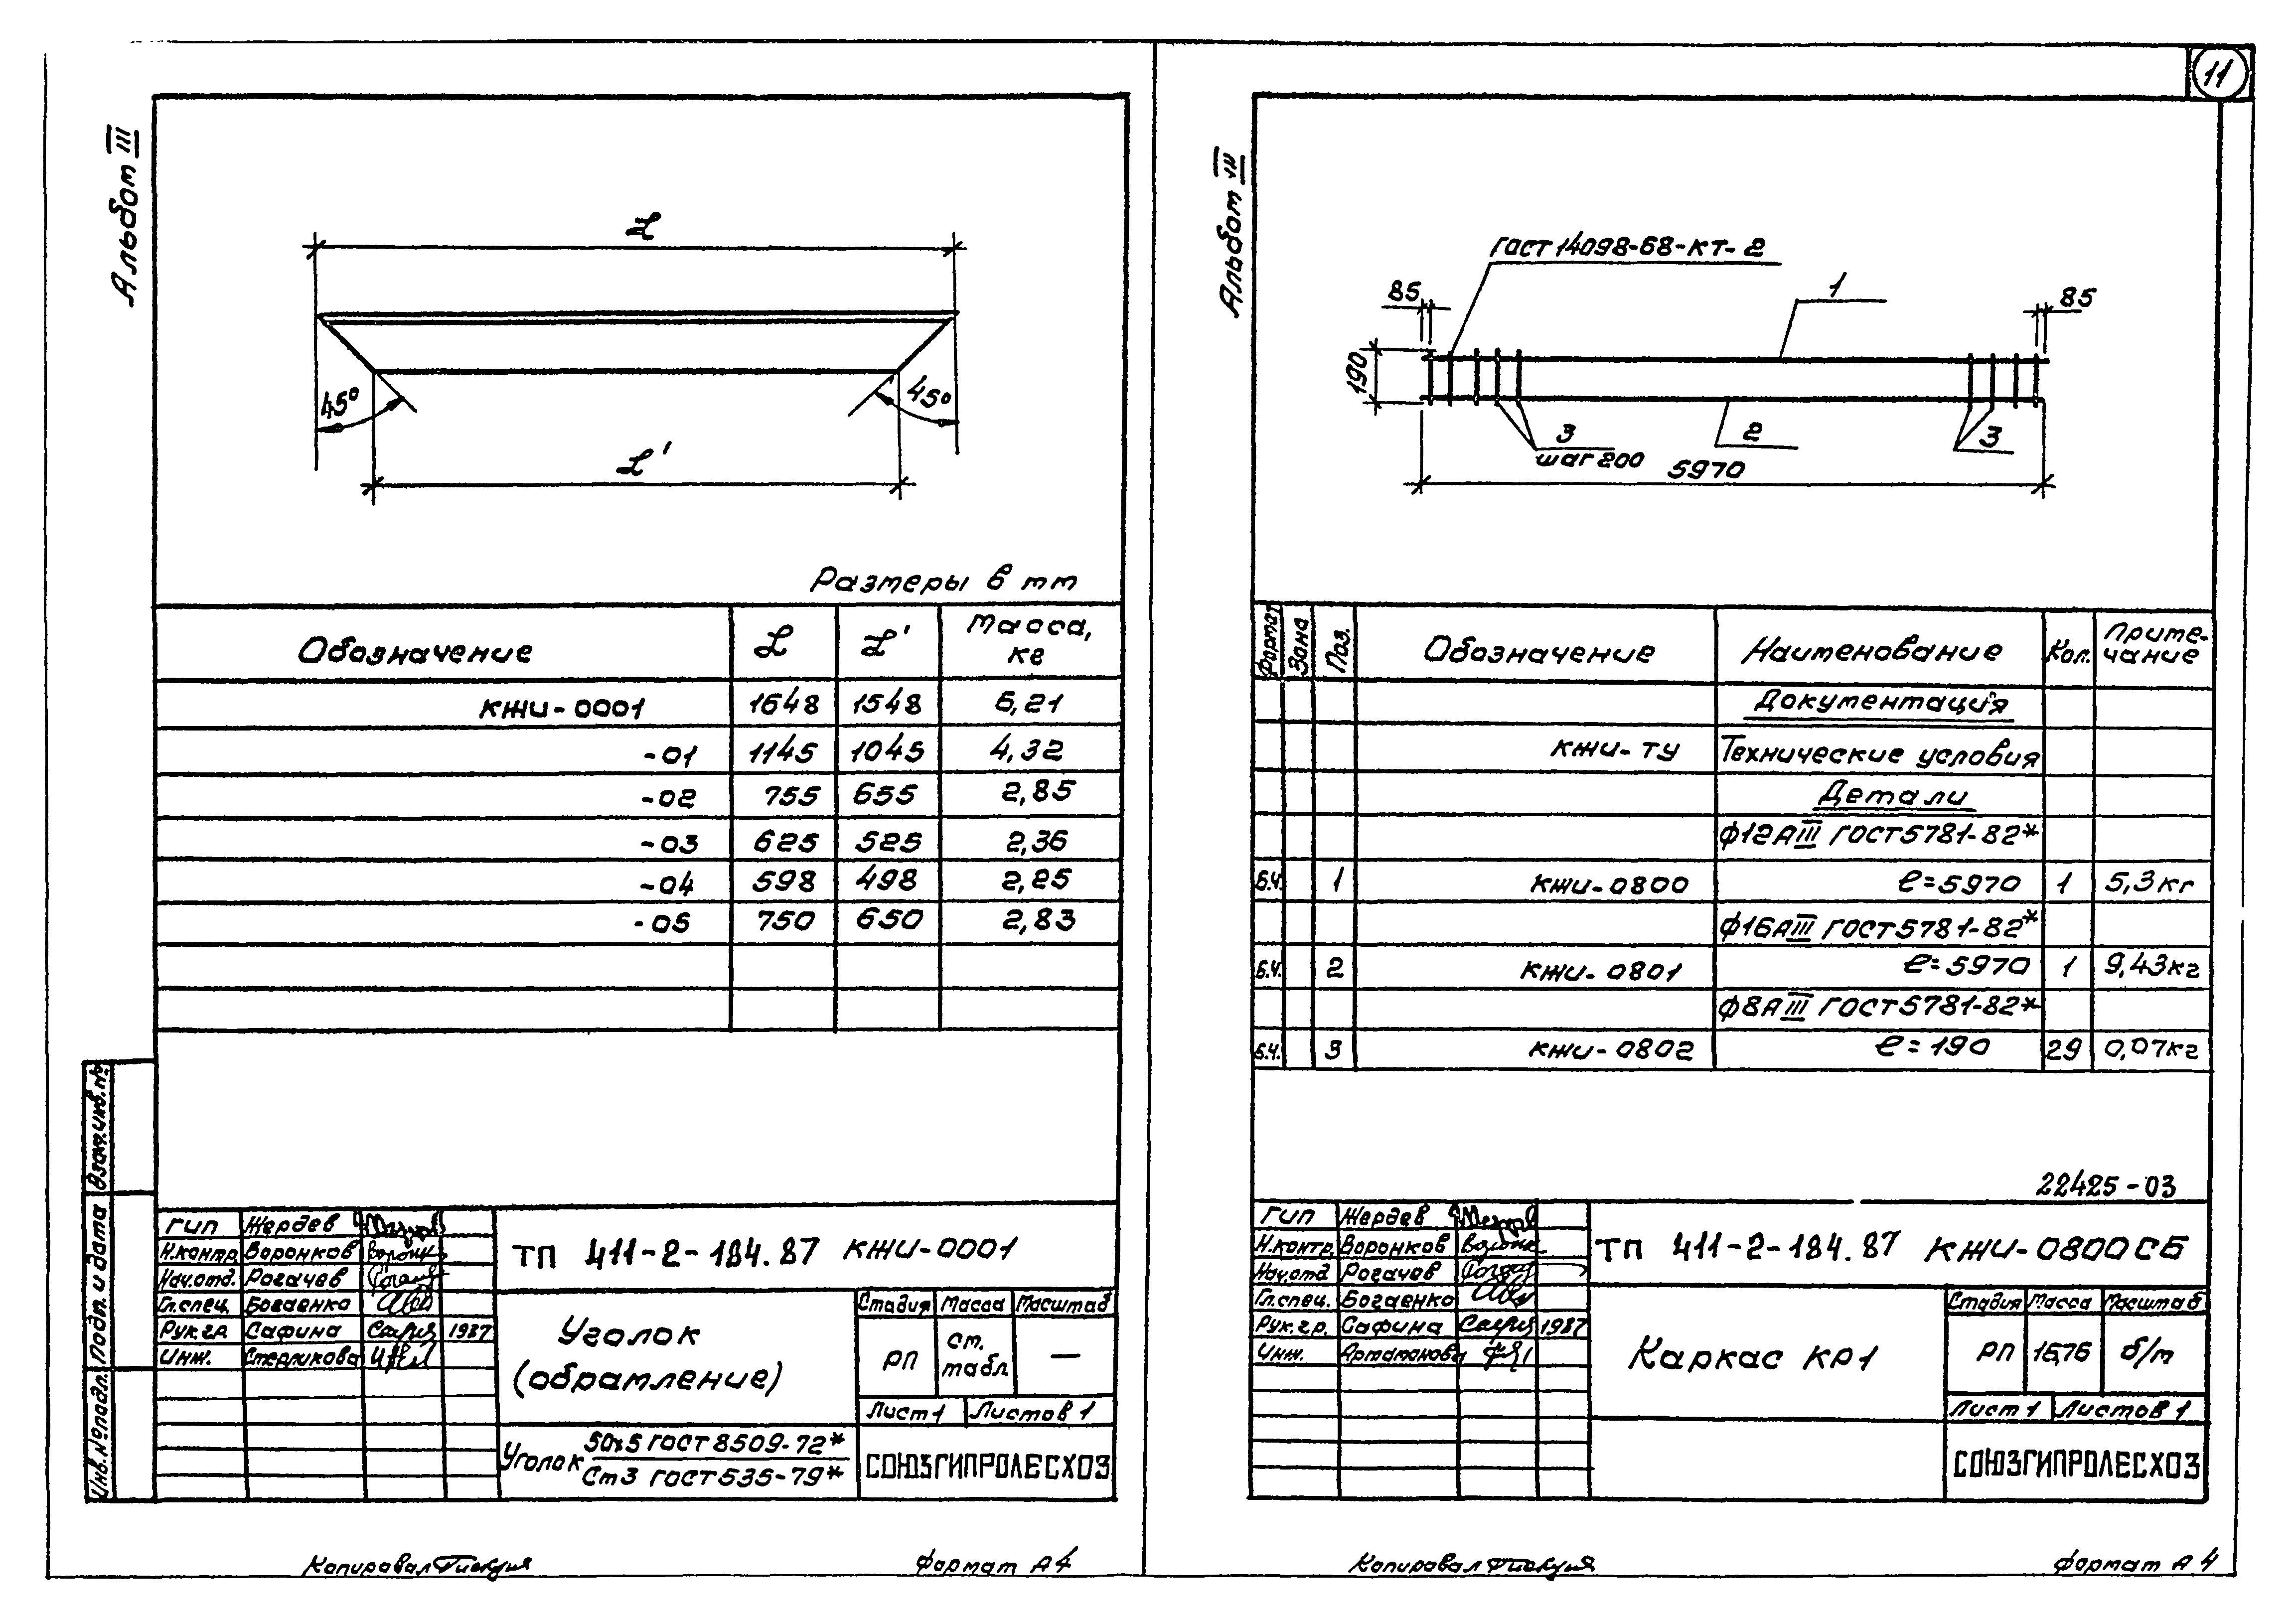 11
Альбом III
L
45°
45°
L'
Размеры в мм
Обозначение L L' Масса, кг
КЖИ-0001 1648 1548 6,21
-01 1145 1045 4,32
-02 755 655 2,85
-03 625 525 2,36
-04 598 498 2,25
-05 750 650 2,83
Взам.инв.№
Подп. и дата
Инв.№подл.
ГИП Жердев
Н.контр. Воронков
Нач.отд. Рогачев
Гл.спец. Богаенко
Рук.гр. Сафина 1987
Инж. Стерликова
ТП 411-2-184.87 КЖИ-0001
Уголок
(обрамление)
Стадия Масса Масштаб
РП см. табл. —
Лист 1 Листов 1
Уголок 50х5 ГОСТ 8509-72*
Ст3 ГОСТ 535-79*
СОЮЗГИПРОЛЕСХОЗ
Копировал
Формат А4
Альбом III
ГОСТ 14098-68-КТ-2
85
1
85
190
3
шаг 200
2
3
5970
Формат Зона Поз. Обозначение Наименование Кол. Примечание
Документация
КЖИ-ТУ Технические условия
Детали
Ф12АIII ГОСТ5781-82*
Б.Ч. 1 КЖИ-0800 ℓ=5970 1 5,3кг
Ф16АIII ГОСТ5781-82*
Б.Ч. 2 КЖИ-0801 ℓ=5970 1 9,43кг
Ф8АIII ГОСТ5781-82*
Б.Ч. 3 КЖИ-0802 ℓ=190 29 0,07кг
22425-03
ГИП Жердев
Н.контр. Воронков
Нач.отд Рогачев
Гл.спец. Богаенко
Рук.гр. Сафина 1987
Инж. Артамонова
ТП 411-2-184.87 КЖИ-0800СБ
Каркас КР1
Стадия Масса Масштаб
РП 16,76 б/м
Лист 1 Листов 1
СОЮЗГИПРОЛЕСХОЗ
Копировал
Формат А4